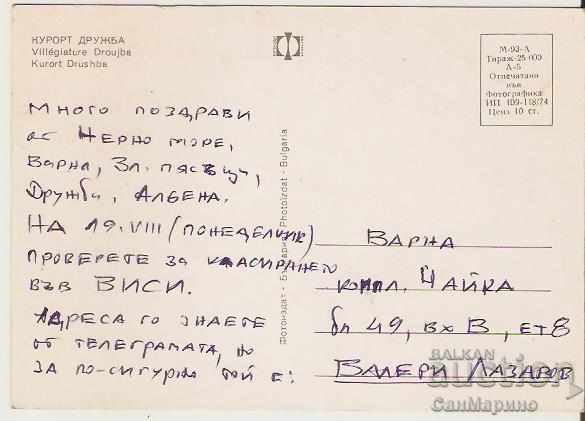 КУРОРТ ДРУЖБА
Villégiature Droujba
Kurort Drushba
М-93-А
Тираж 25 000
А-5
Отпечатано
във
Фотографика
ИП 109-118/74
Цена 10 ст.
МНОГО ПОЗДРАВИ
от ЧЕРНО МОРЕ,
ВАРНА, ЗЛ. ПЯСЪЦИ,
Дружба, АЛБЕНА.
НА 19.VIII (ПОНЕДЕЛНИК)
ПРОВЕРЕТЕ ЗА КЛАСИРАНЕТО
ВЪВ ВИСИ.
АДРЕСА ГО ЗНАЕТЕ
ОТ ТЕЛЕГРАМАТА, но
ЗА ПО-СИГУРНО ТОЙ Е:
Фотоиздат - България Photoizdat - Bulgaria
ВАРНА
КОМПЛ. ЧАЙКА
бл 49, вх В, ЕТ 8
ВАЛЕРИ ЛАЗАРОВ
BALKAN
auction
СанМарино